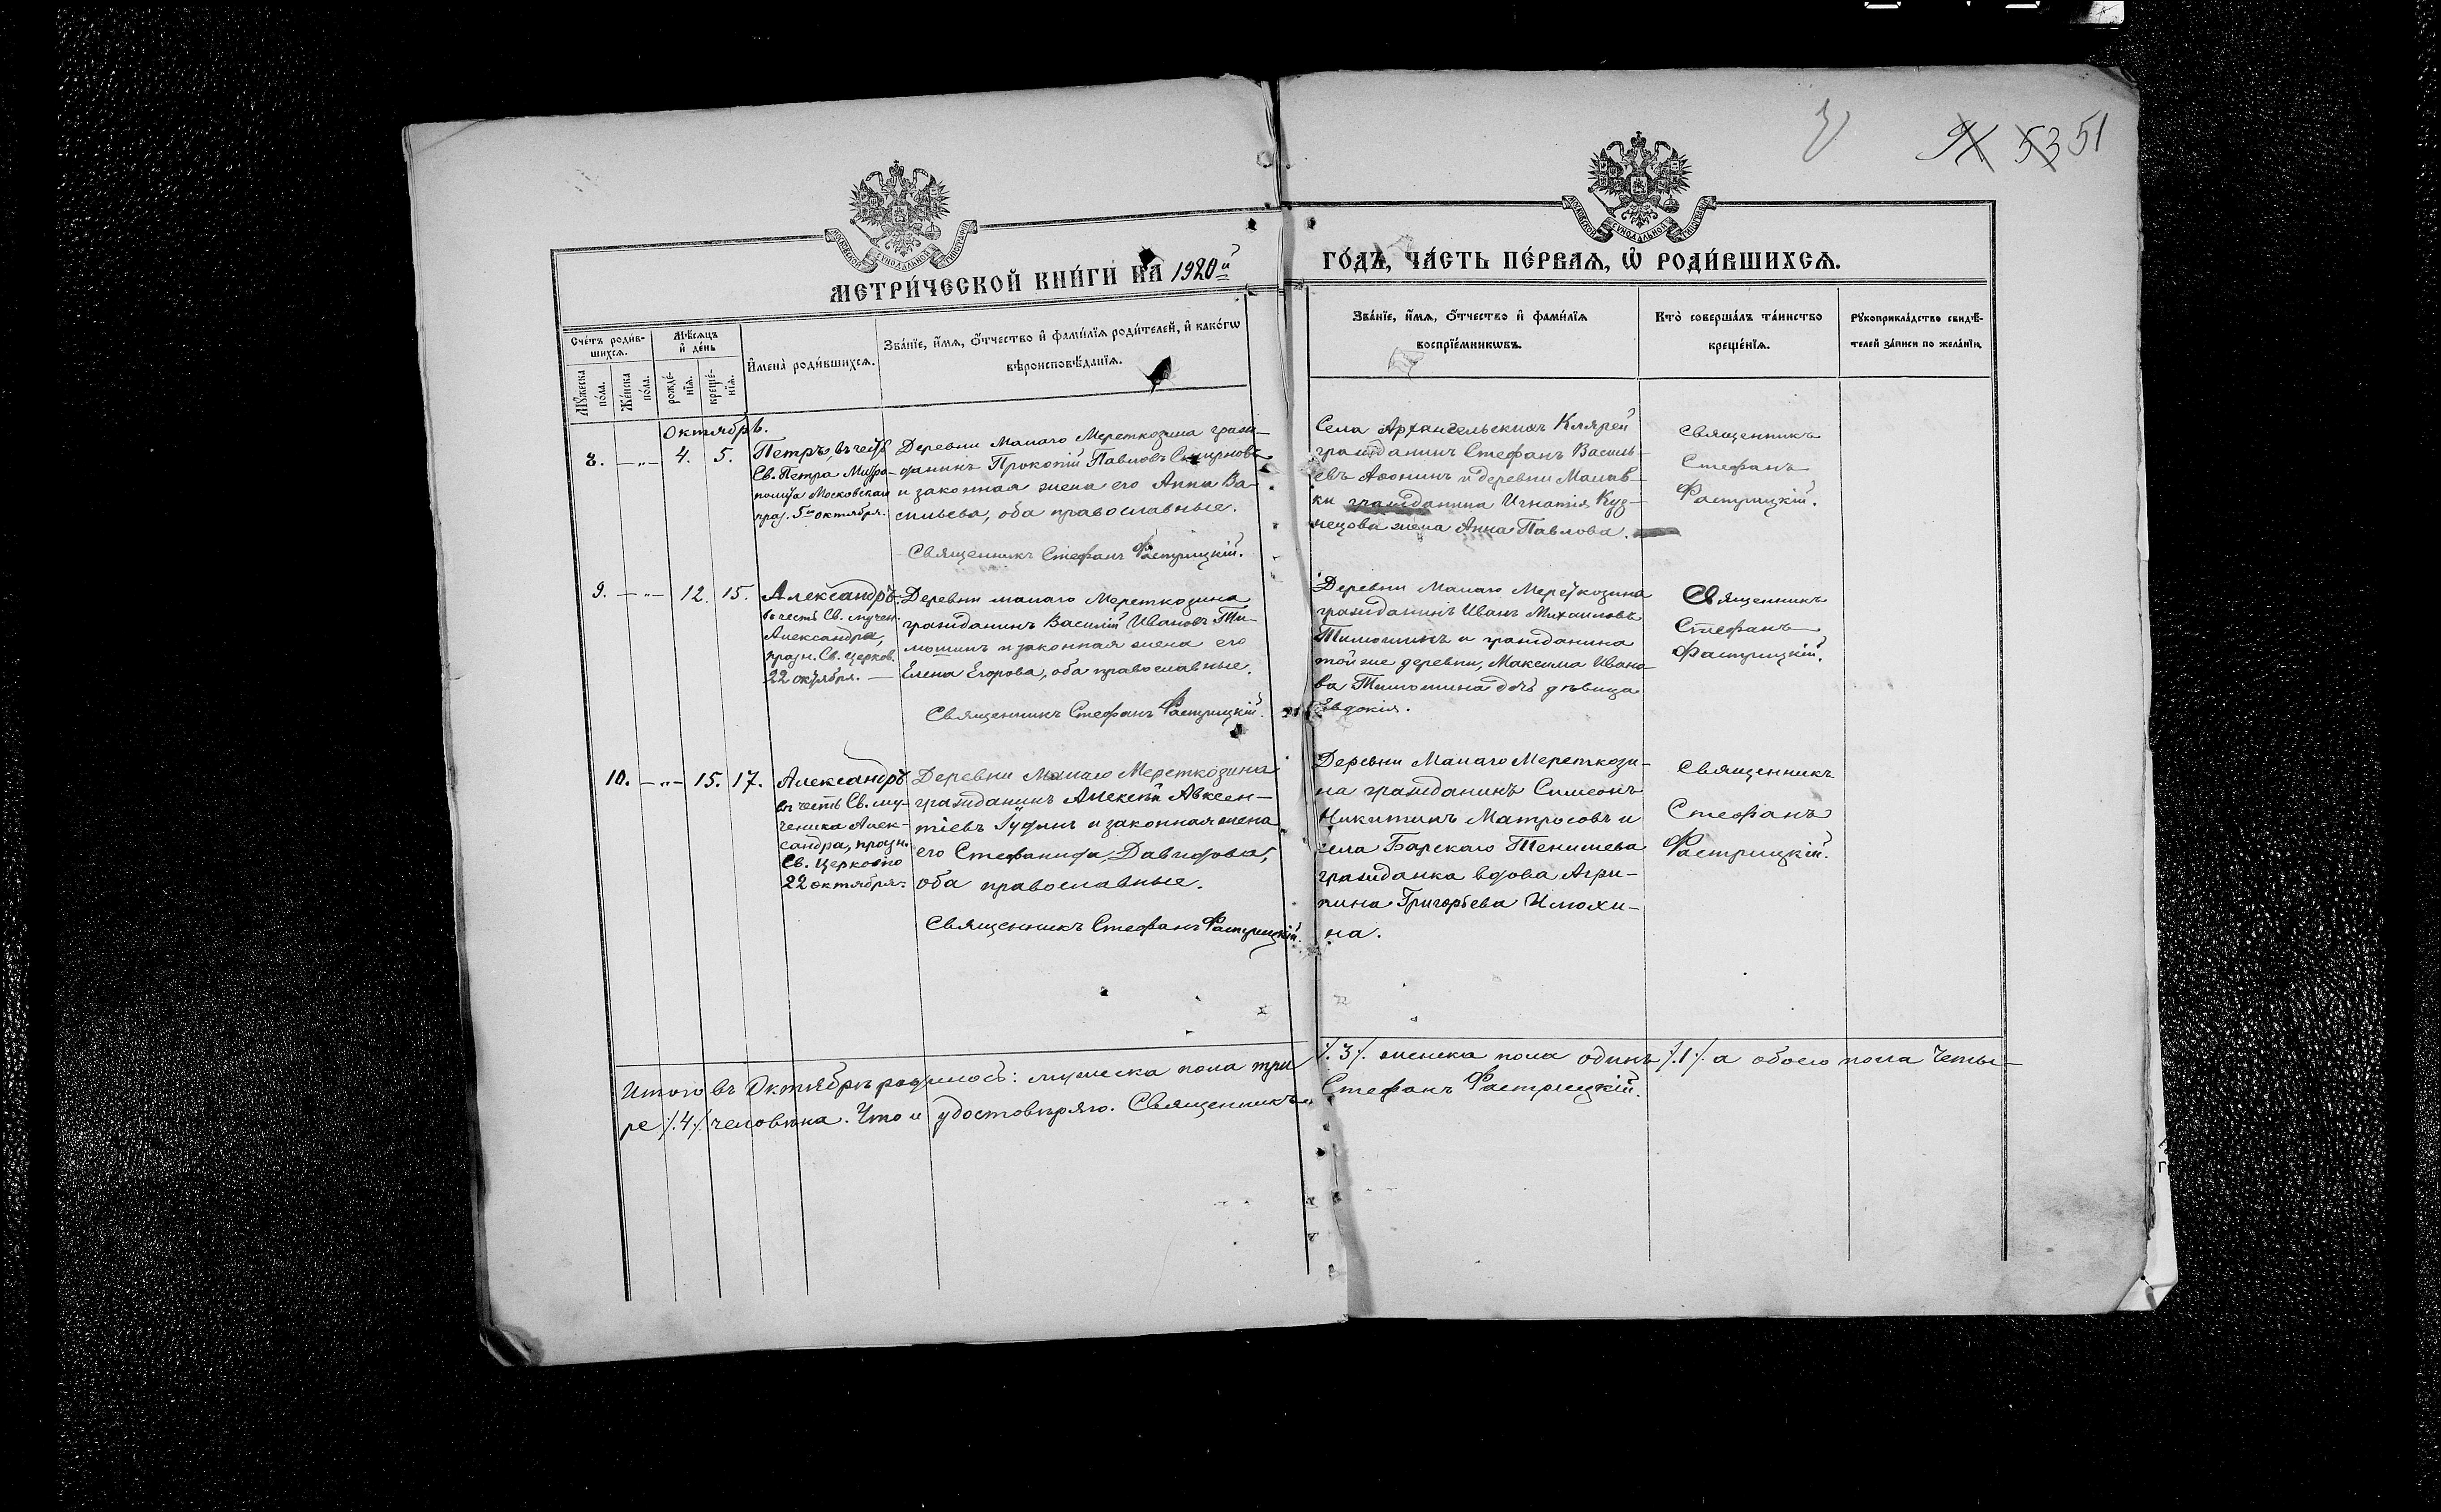 91 53 51
МОСКОВСКОЙ СУНОДАЛЬНОЙ ТИПОГРАФІИ
МОСКОВСКОЙ СУНОДАЛЬНОЙ ТИПОГРАФІИ
МЕТРИ́ЧЕСКОЙ КНИ́ГИ НА 1920й
ГО́ДЪ, ЧА́СТЬ ПЕ́РВАѦ, Ѡ҆ РОДИ́ВШИХСѦ.
Сче́тъ роди́в-
шихсѧ.
Мꙋ́жеска по́ла.
Же́нска по́ла.
Мѣ́сѧцъ
и҆ де́нь
рожде́-
нїѧ.
креще́-
нїѧ.
И҆мена̀ роди́вшихсѧ.
Зва́нїе, и҆́мѧ, о҆́тчество и҆ фами́лїѧ роди́телей, и҆ како́гѡ
вѣроисповѣ́данїѧ.
Зва́нїе, и҆́мѧ, о҆́тчество и҆ фами́лїѧ
воспрїе́мникѡвъ.
Кто̀ соверша́лъ та́инство
креще́нїѧ.
Рꙋкоприкла́дство свидѣ́-
телей за́писи по жела́нїю.
Октябрь.
8. —"— 4. 5.
Петръ, въ честь
Св. Петра Митро-
полита Московскаго
праз. 5го октября.
Деревни Малаго Мереткозина граж-
данинъ Прокопій Павловъ Смирновъ
и законная жена его Анна Ва-
сильева, оба православные.
Священникъ Стефанъ Фастрицкій.
Села Архангельскихъ Клярей
гражданинъ Стефанъ Василь-
евъ Аѳонинъ и деревни Малав-
ки гражданина Игнатія Куз-
нецова жена Анна Павлова.
Священникъ
Стефанъ
Фастрицкій.
9. —"— 12. 15.
Александръ
въ честь Св. мучен.
Александра,
празн. Св. Церков.
22 октября. —
Деревни малаго Мереткозина
гражданинъ Василій Ивановъ Ти-
мошинъ и законная жена его
Елена Егорова, оба православные.
Священникъ Стефанъ Фастрицкій.
Деревни Малаго Мереткозина
гражданинъ Иванъ Михаиловъ
Тимошинъ и гражданина
той же деревни, Максима Ивано-
ва Тимошина дочь дѣвица
Евдокія.
Священникъ
Стефанъ
Фастрицкій.
10. —"— 15. 17.
Александръ
въ честь Св. му-
ченика Алек-
сандра, празн.
Св. Церковію
22 октября.
Деревни Малаго Мереткозина
гражданинъ Алексѣй Авксен-
тіевъ Гудинъ и законная жена
его Стефанида Давидова,
оба православные.
Священникъ Стефанъ Фастрицкій.
Деревни Малаго Мереткози-
на гражданинъ Симеонъ
Никитинъ Матросовъ и
села Барскаго Тенишева
гражданка вдова Агри-
пина Григорьева Илюхи-
на.
Священникъ
Стефанъ
Фастрицкій.
Итого въ Октябрѣ родилось: мужеска пола три /.3/. женска пола одинъ /.1/. а обоего пола четы-
ре /.4/. человѣка. Что и удостовѣряю. Священникъ Стефанъ Фастрицкій.